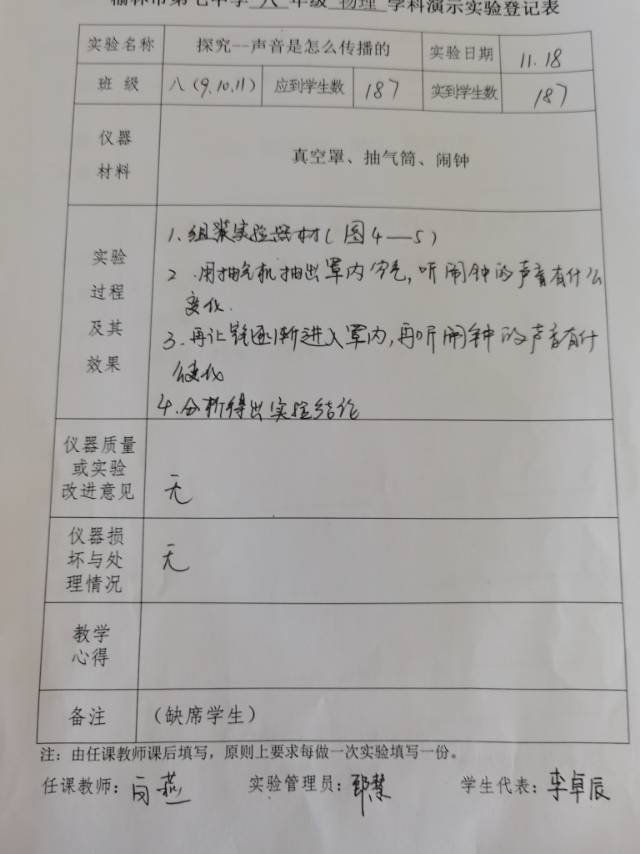 榆林市第七中学 八 年级 物理 学科演示实验登记表
实验名称 探究--声音是怎么传播的 实验日期 11.18
班 级 八(9,10,11) 应到学生数 187 实到学生数 187
仪器
材料
真空罩、抽气筒、闹钟
实验
过程
及其
效果
1、组装实验器材(图4—5)
2 .用抽气机抽出罩内空气,听闹钟的声音有什么
变化.
3.再让空气逐渐进入罩内,再听闹钟的声音有什
么变化
4.分析得出实验结论
仪器质量
或实验
改进意见
无
仪器损
坏与处
理情况
无
教学
心得
备注 (缺席学生)
注:由任课教师课后填写,原则上要求每做一次实验填写一份。
任课教师: 燕 实验管理员: 学生代表:李卓辰